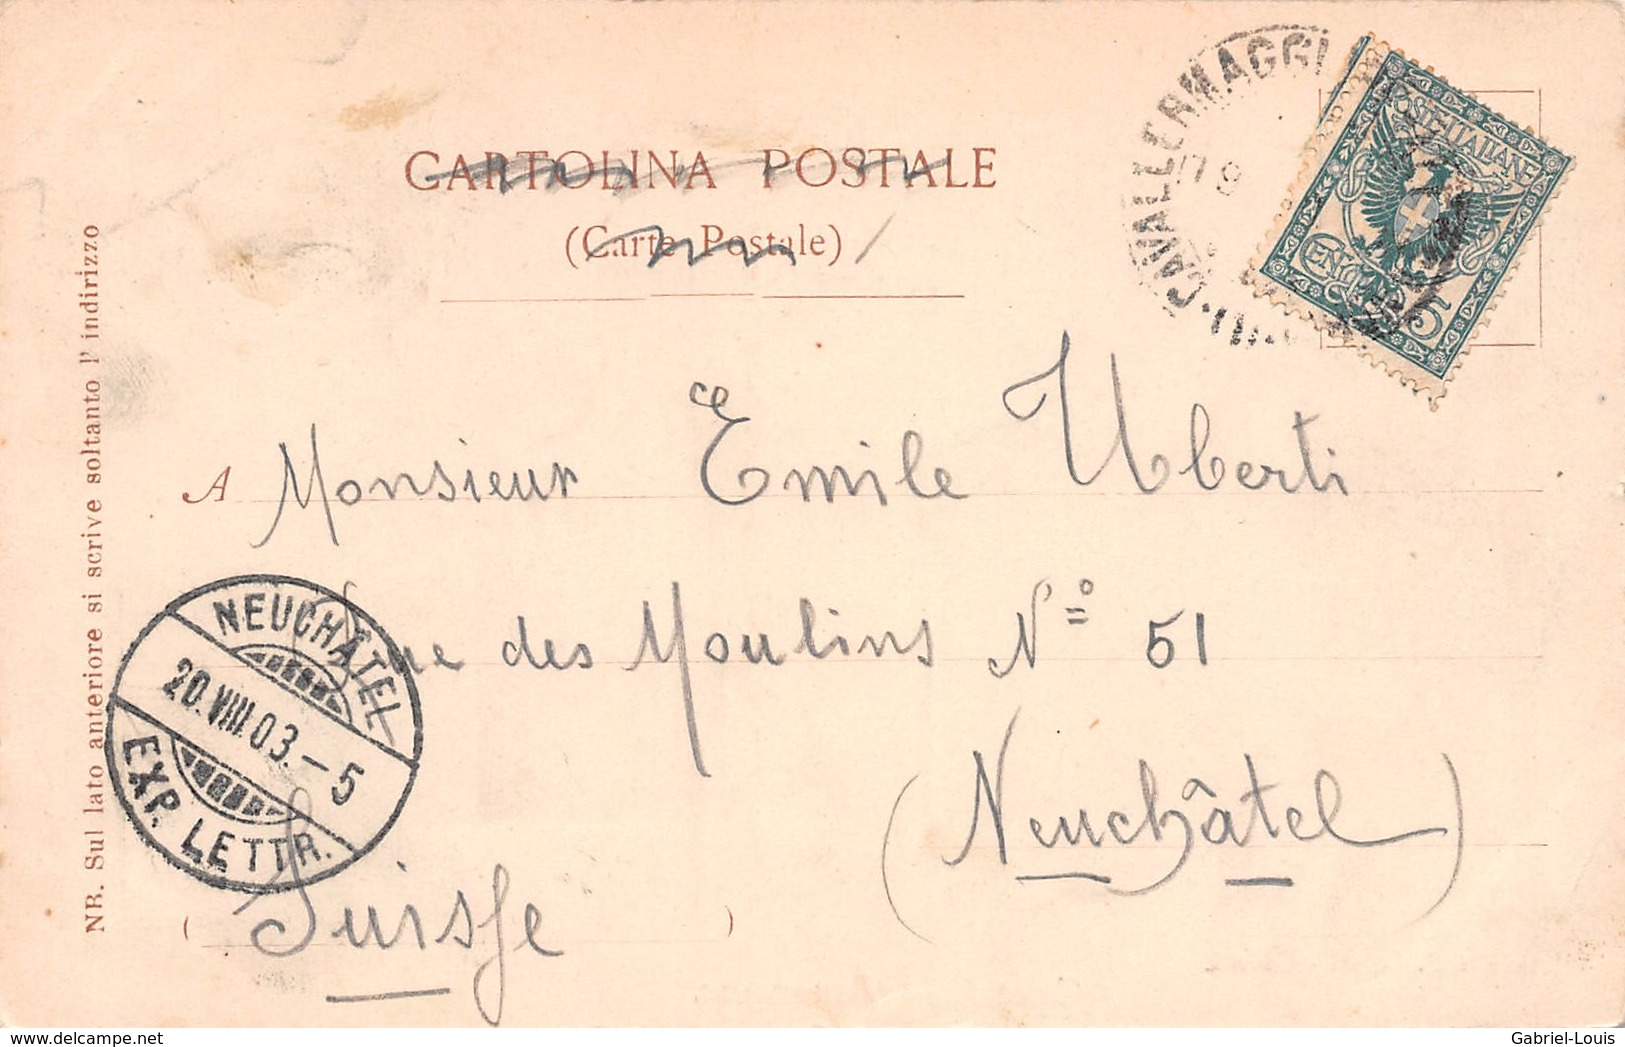 CARTOLINA POSTALE
(Carte Postale)
CAVALLERMAGGI
POSTE ITALIANE
CENT. 5
A Monsieur Emile Uberti
Rue des Moulins Nº 51
(Neuchâtel)
Suisse
NEUCHÂTEL
20.VIII.03.–5
EXP. LETTR.
NB. Sul lato anteriore si scrive soltanto l'indirizzo
delcampe.net
Gabriel-Louis